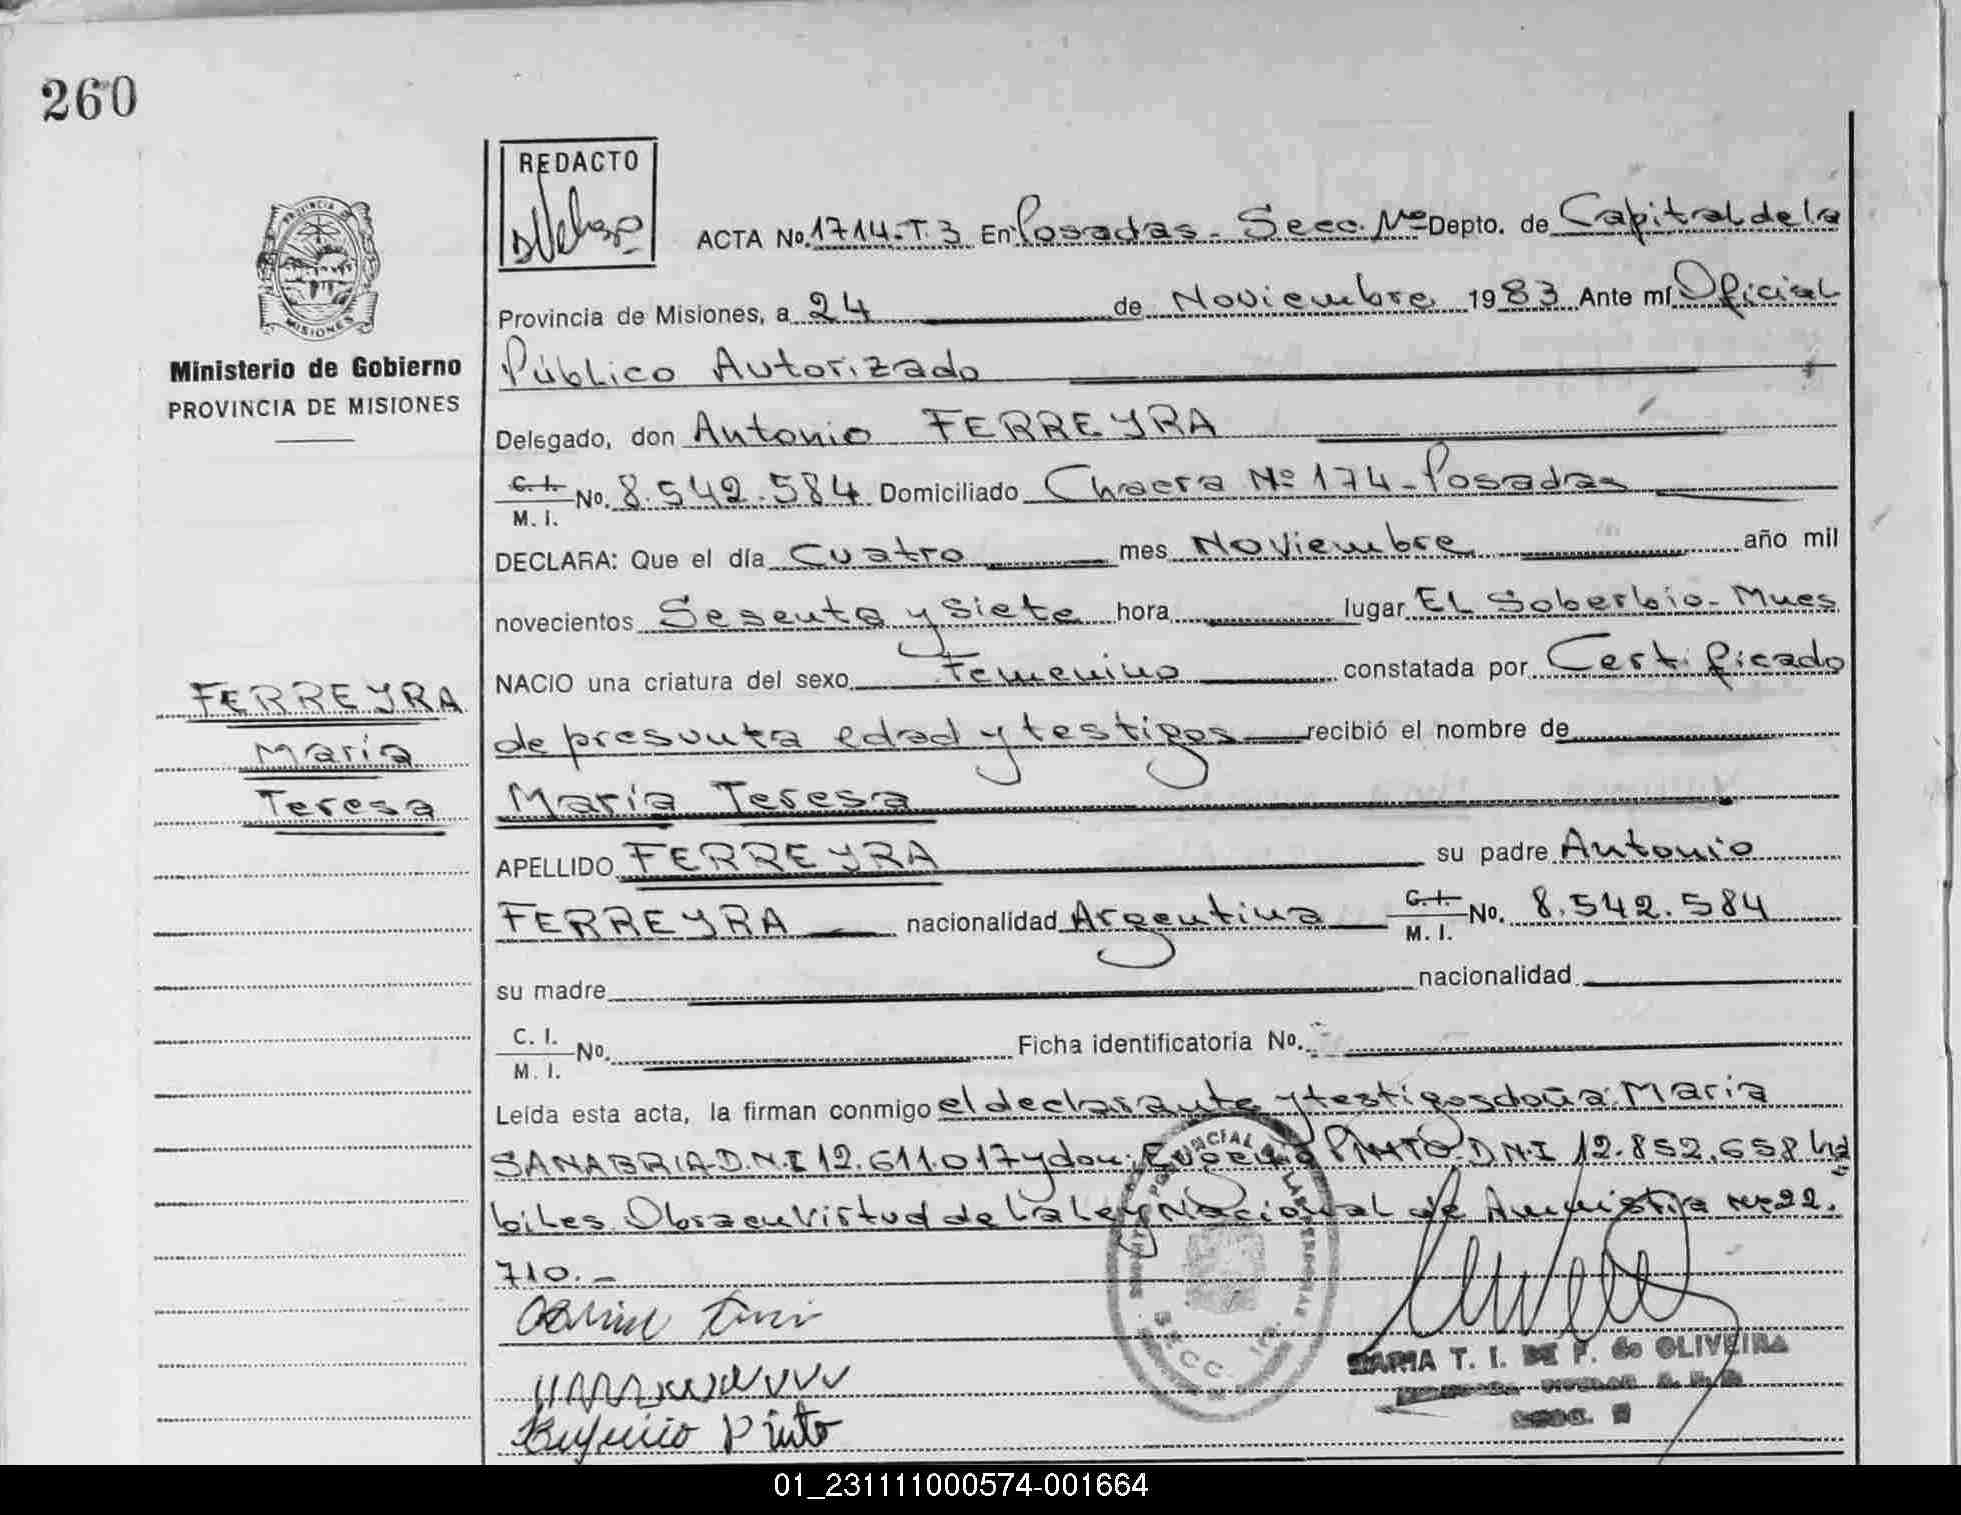 260
REDACTO
ACTA No. 1714-T.3 En Posadas - Secc. Nº Depto. de Capital de la
Provincia de Misiones, a 24 de Noviembre 1983 Ante mí Oficial
Ministerio de Gobierno
PROVINCIA DE MISIONES
Público Autorizado
Delegado, don Antonio FERREYRA
C. I. M. I. No. 8.542.584 Domiciliado Chacra Nº 174 - Posadas
DECLARA: Que el día Cuatro mes Noviembre año mil
novecientos Sesenta y Siete hora lugar El Soberbio - Mnes
NACIO una criatura del sexo Femenino constatada por Certificado
FERREYRA
María
Teresa
de presunta edad y testigos recibió el nombre de
María Teresa
APELLIDO FERREYRA su padre Antonio
FERREYRA nacionalidad Argentina C. I. M. I. No. 8.542.584
su madre nacionalidad
C. I. M. I. No. Ficha identificatoria No.
Leída esta acta, la firman conmigo el declarante y testigos doña: Maria
SANABRIA-D.N.I 12.611.017 y don: Eugenio PINTO-D.N.I 12.852.658 há
biles. Obra en Virtud de la Ley Nacional de Amnistía Nº 22.
710.-
Eugenio Pinto
MARIA T. I. DE F. de OLIVEIRA
01_231111000574-001664